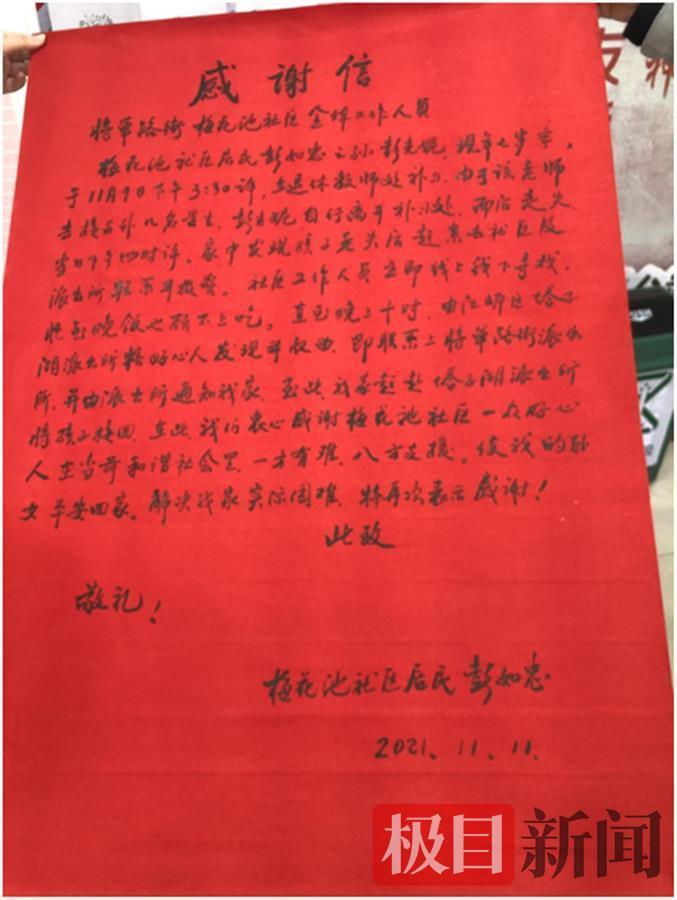 感谢信
将军路街 梅花池社区全体工作人员
梅花池社区居民彭如忠之孙彭 妮,现年七岁半。
于11月9日下午3:30许,在退休教师处补习,由于该老师
去接另外几名学生,彭 妮自行离开补习处,而后走失,
当日下午四时许,家中发现孩子走失后赶 社区及
派出所联系并报警。社区工作人员立即线上线下寻找,
忙的晚饭也顾不上吃。直至晚上十时,由江岸区塔子
湖派出所转好心人发现并收留,即联系上将军路街派出
所,并由派出所通知我家,至此,我家赶赴塔子湖派出所
将孩子接回,在此,我们衷心感谢梅花池社区一众好心
人在当前和谐社会里,一方有难,八方支援。使我的孙
女平安回家。解决我家实际困难,特再次表示感谢!
此致
敬礼!
梅花池社区居民彭如忠
2021.11.11.
极目新闻